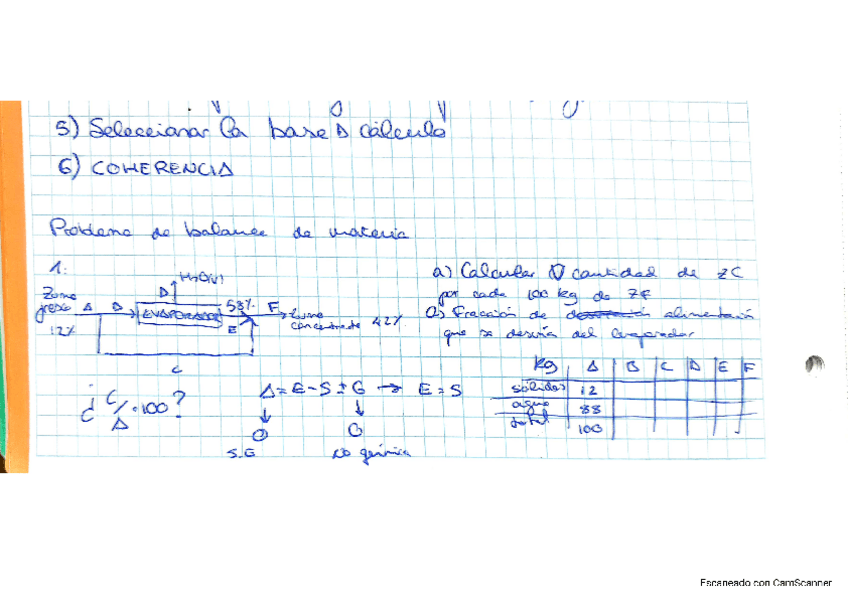 5) Seleccionar la base Δ cálculo
6) COHERENCIA
Problema de balance de materia
1.
H2O(v)
D
Zumo
fresco A B EVAPORADOR 58% F zumo
concentrado 42%
12% E
C
a) Calcular ∇ cantidad de ZC
por cada 100 kg de ZF
b) Fracción de alimentación
que se desvía del evaporador
¿ C/A · 100?
Δ = E - S ± G → E = S
0 0
S.E No química
kg A B C D E F
sólidos 12
agua 88
total 100
Escaneado con CamScanner